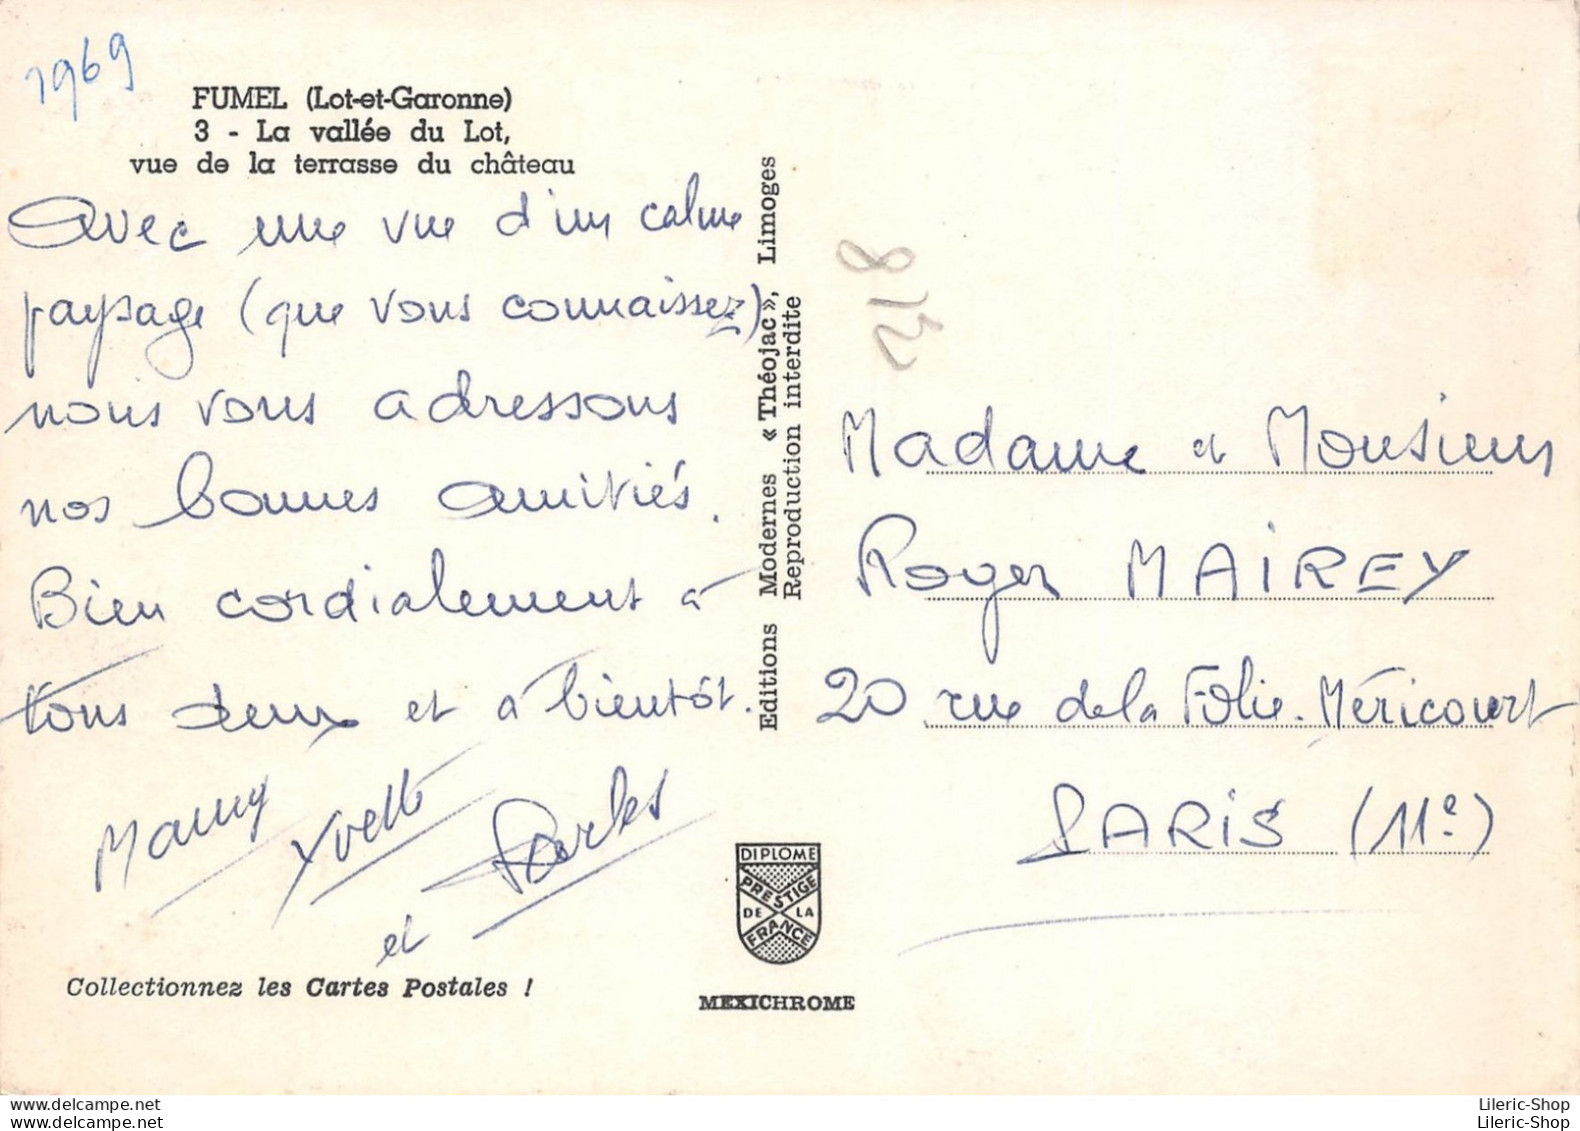 1969
FUMEL (Lot-et-Garonne)
3 - La vallée du Lot,
vue de la terrasse du château
Avec une vue d'un calme
paysage (que vous connaissez)
nous vous adressons
nos bonnes amitiés.
Bien cordialement à
tous deux et à bientôt.
Mamy
Yvette
et
Collectionnez les Cartes Postales !
Editions Modernes « Théojac », Limoges
Reproduction interdite
DIPLOME
PRESTIGE
DE LA
FRANCE
MEXICHROME
812
Madame et Monsieur
Roger MAIREY
20 rue de la Folie-Méricourt
PARIS (11e)
www.delcampe.net
www.delcampe.net
Lileric-Shop
Lileric-Shop